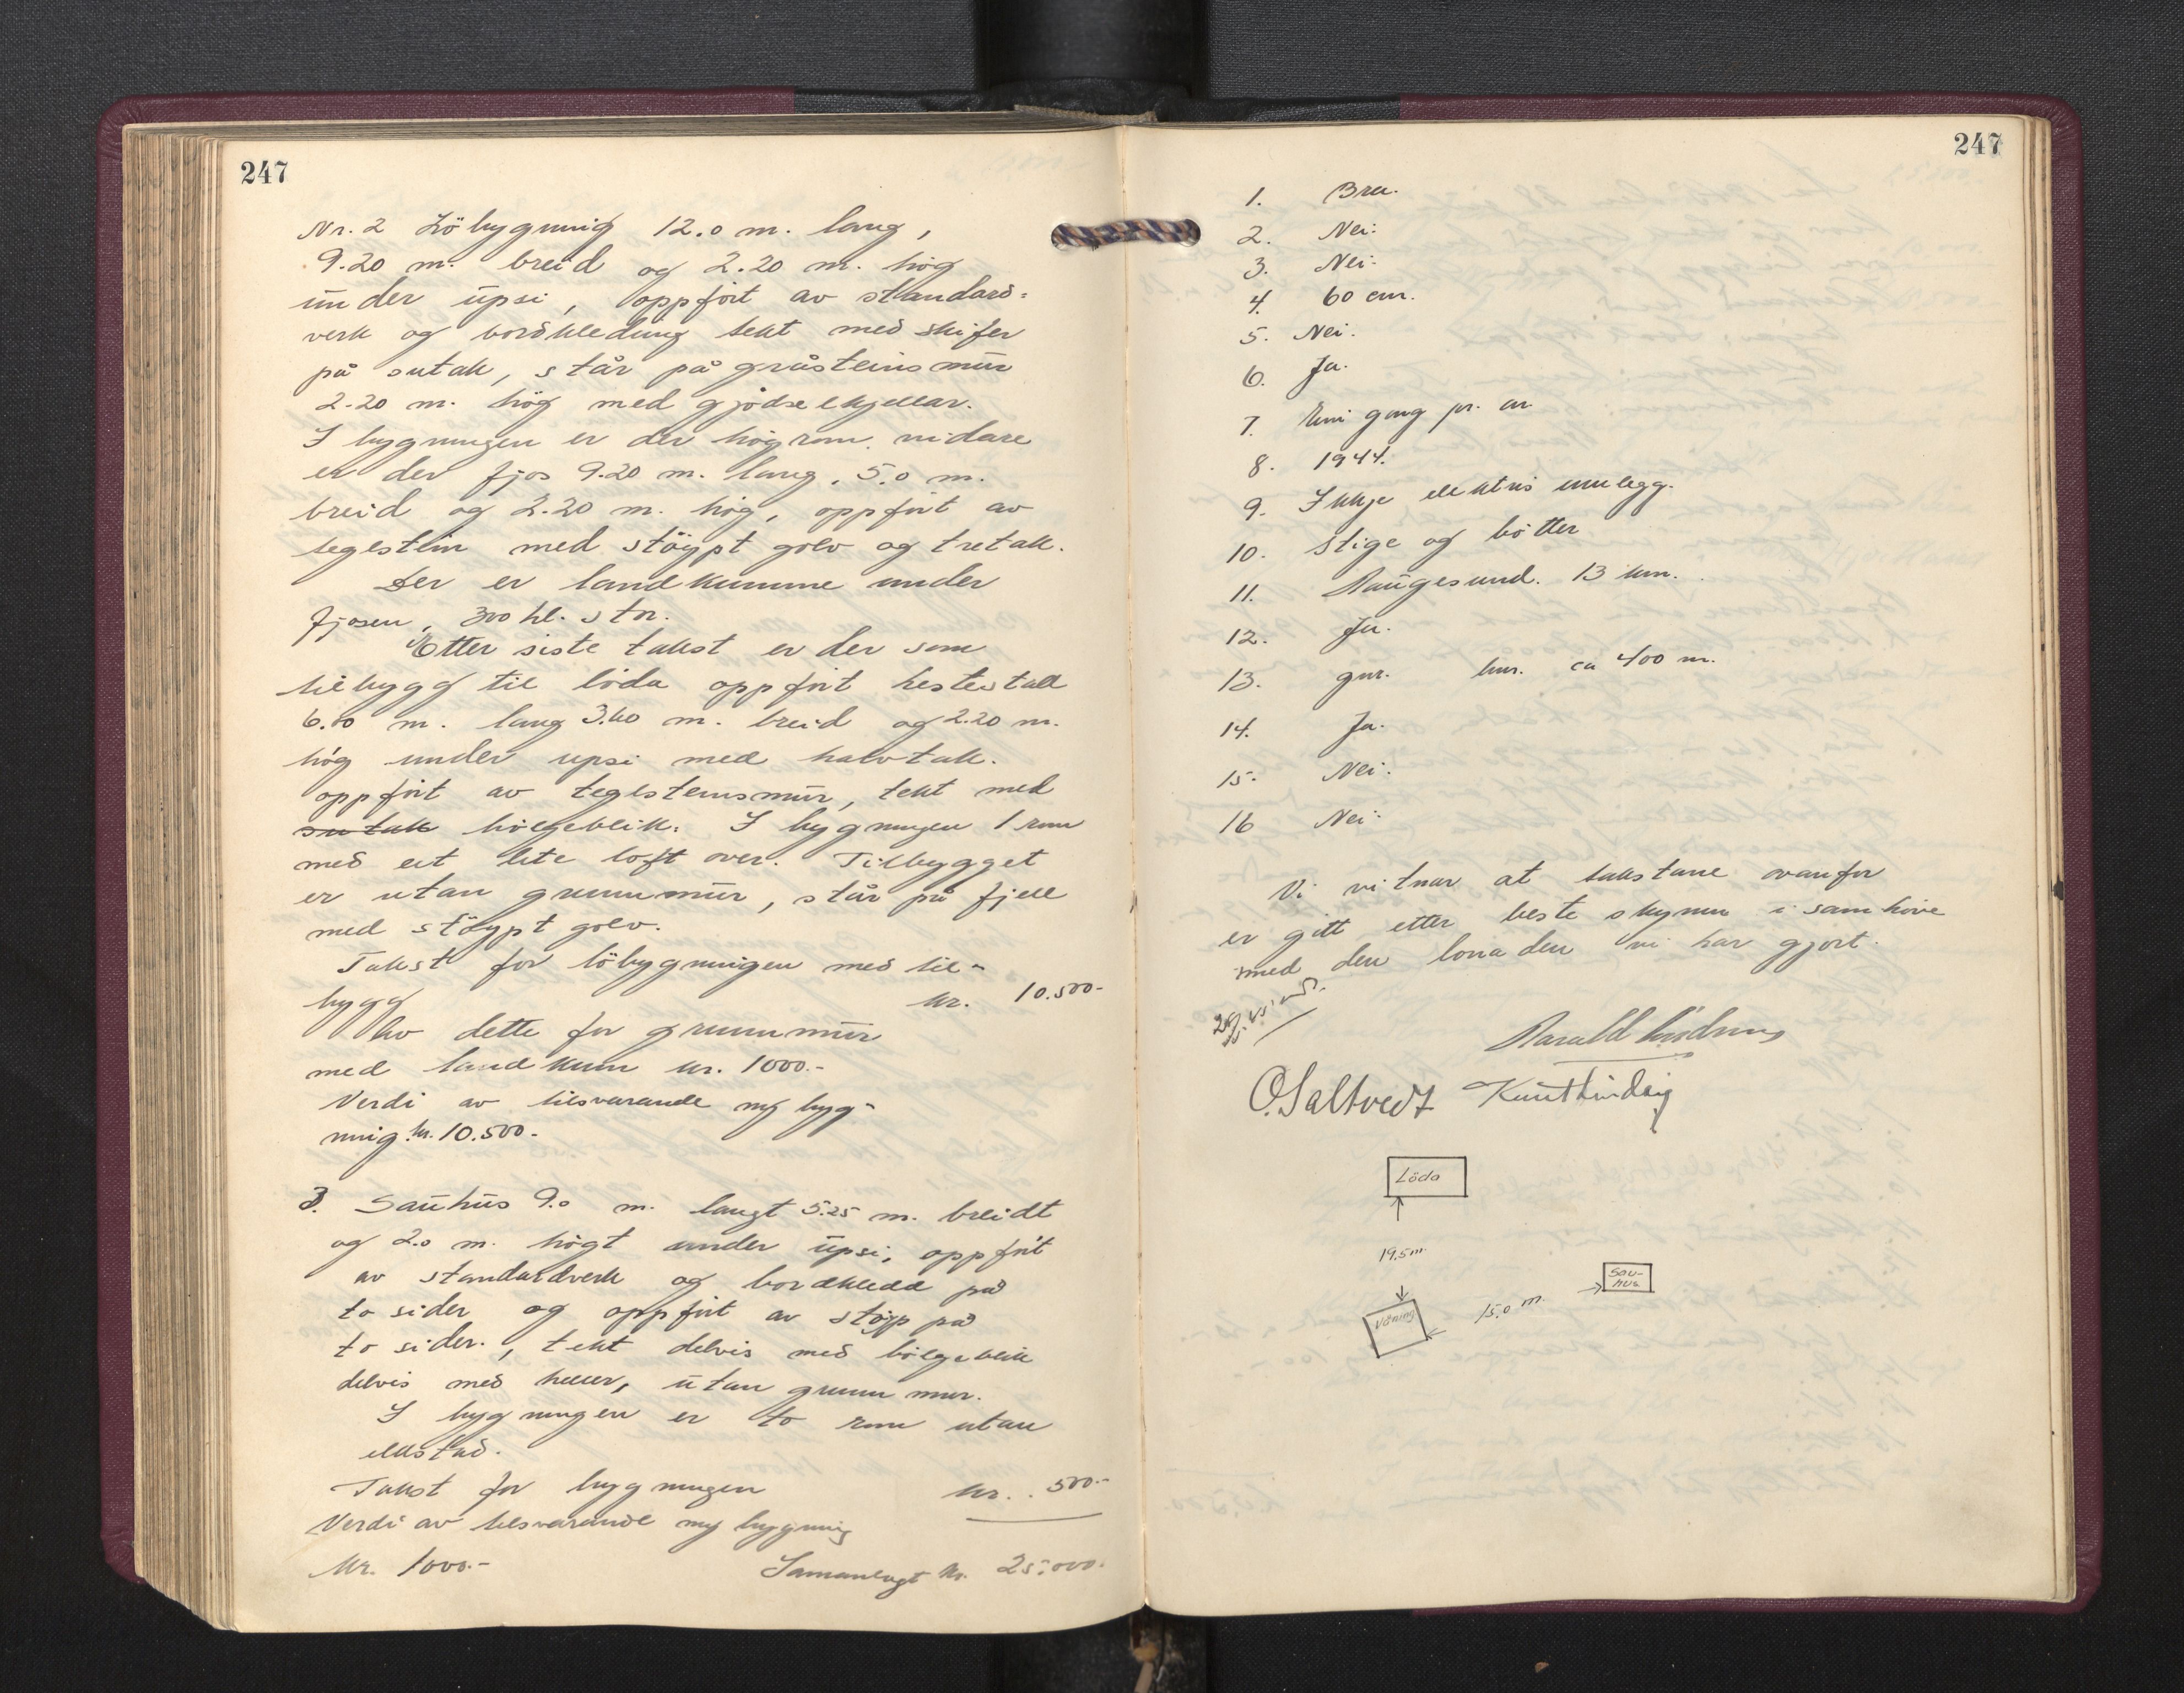 247
Nr. 2 Löbygning 12.0 m. lang,
9.20 m. breid og 2.20 m. hög
under upsi, oppfört av standard-
verk og bordkledning tekt med skifer
på sutak, står på gråsteinsmur
2.20 m. hög med gjödselkjellar.
I bygningen er der högrom. vidare
er der fjos 9.20 m. lang, 5.0 m.
breid og 2.20 m. hög, oppfört av
teglstein med stöypt golv og tretak.
Der er landkumme under
fjosen, 300 hl. stor.
Etter siste takst er der som
tilbygg til löda oppfört hestestall
6.10 m. lang 3.60 m. breid og 2.20 m.
hög under upsi med halvtak.
oppfört av teglsteinsmur, tekt med
sutak bölgeblik. I bygningen 1 rom
med eit lite loft over. Tilbygget
er utan grunnmur, står på fjell
med stöypt golv.
Takst for löbygningen med til-
bygg kr. 10.500-
Av dette for grunnmur
med landkum kr. 1000.-
Verdi av tilsvarande ny byg-
ning kr. 10.500-
3. Sauhus 9.0 m. langt 5.25 m. breidt
og 2.0 m. högt under upsi, oppfört
av standardverk og bordkledd på
to sider og oppfört av stöyp på
to sider., tekt delvis med bölgeblik
delvis med heller, utan grunnmur.
I bygningen er to rom utan
eldstad.
Takst for bygningen kr. 500.-
Verdi av tilsvarande ny bygning
kr. 1000.- Samanlagt kr. 25.000.
247
1. Bra.
2. Nei.
3. Nei.
4. 60 cm.
5. Nei.
6. Ja.
7. Ein gong pr. år
8. 1944.
9. Ikkje elektris innlegg.
10. Stige og bötter
11. Haugesund. 13 km.
12. Ja.
13. gnr. bnr. ca 400 m.
14. Ja.
15. Nei.
16 Nei.
Vi vitnar at takstane ovanfor
er gitt etter beste skjynn i samhöve
med den lovnaden vi har gjort.
Harald
O. Saltvedt Knut
Löda
19.5 m.
Sau-
hus
15.0 m.
Våning